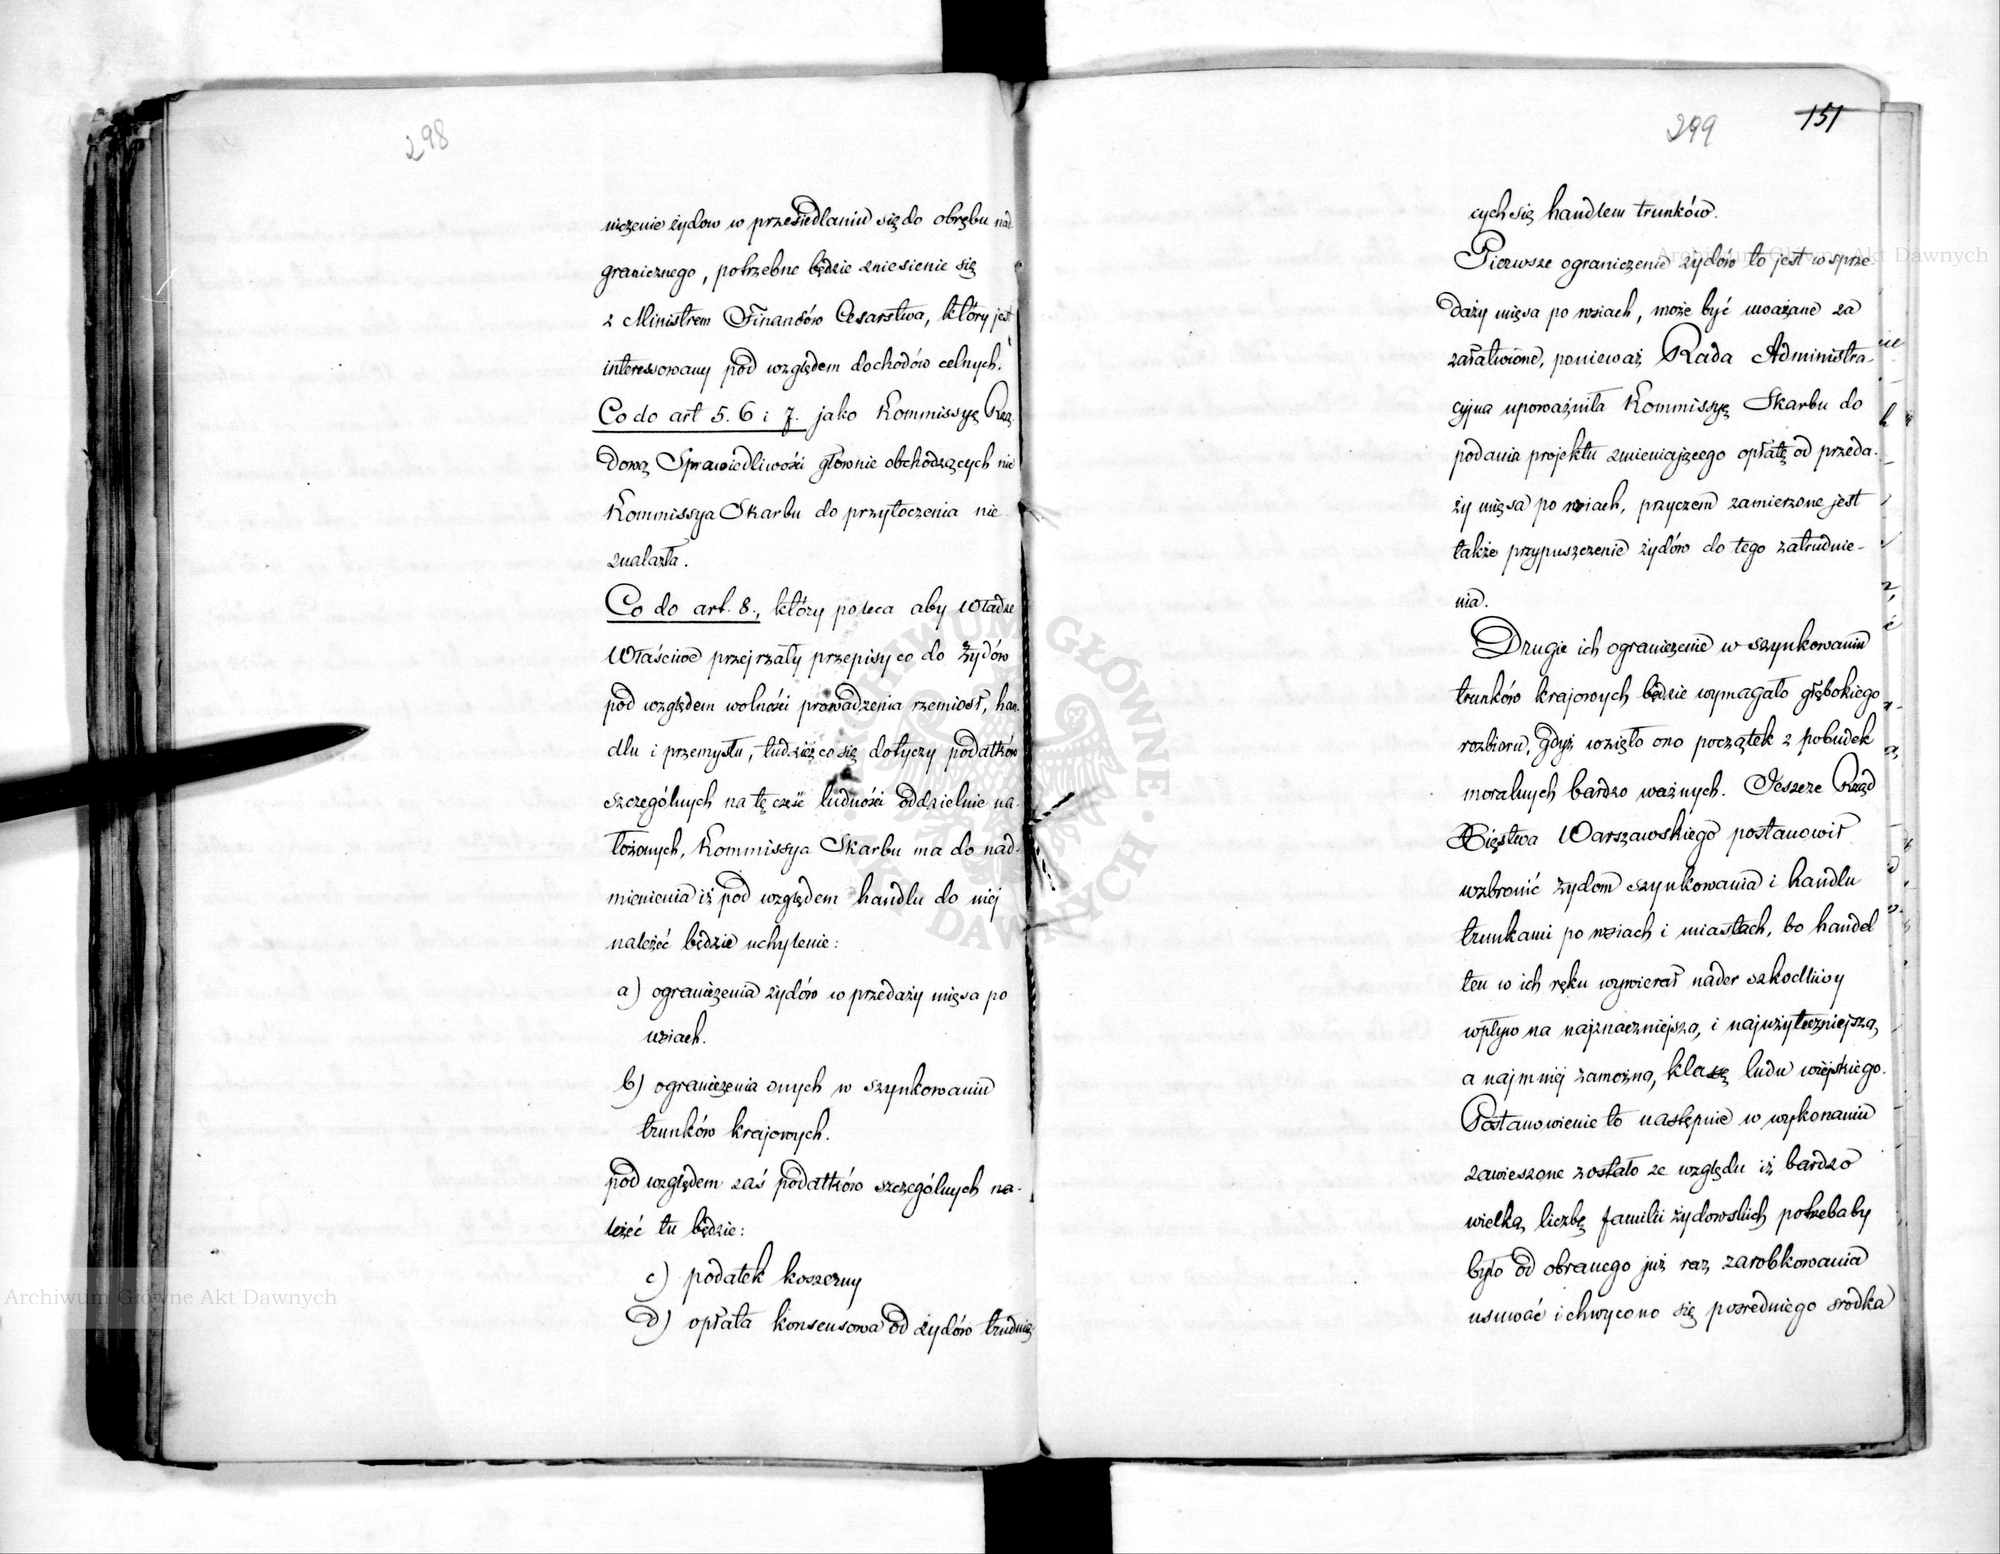 298
niczenie żydow w przesiedlaniu się do obrębu nad.
granicznego, potrzebne będzie zniesienie się
z Ministrem Finansów Cesarstwa, który jest
interessowany pod względem dochodów celnych.
Co do art 5. 6 i 7. jako Kommissyę Rzą
dową Sprawiedliwości głównie obchodzących nie
Kommissya Skarbu do przytoczenia nie
znalazła.
Co do art. 8., który poleca aby Władze
Właściwe przejrzały przepisy co do Żydów
pod względem wolności prowadzenia rzemiosł, han.
dlu i przemysłu, tudzież co się dotyczy podatków
szczególnych na tę cześć ludności oddzielnie na.
łożonych, Kommissya Skarbu ma do nad-
mienienia iż pod względem handlu do niéj
należeć będzie uchylenie:
a) ograniczenia żydów w przedaży mięsa po
wsiach.
b) ograniczenia onych w szynkowaniu
trunków krajowych.
pod względem zaś podatków szczególnych na.
leżeć tu będzie:
c) podatek koszerny
d) opłata konsensowa od żydów trudnią
299
151
cych się handlem trunków.
Pierwsze ograniczenie żydów to jest w sprze
daży mięsa po wsiach, może być uważane za
załatwione, ponieważ Rada Administra-
cyjna upoważniła Kommissyę Skarbu do
podania projektu zmieniającego opłatę od przeda.
ży mięsa po wsiach, przyczem zamierzone jest
także przypuszczenie żydów do tego zatrudnie-
nia.
Drugie ich ograniczenie w szynkowaniu
trunków krajowych będzie wymagało głębokiego
rozbioru, gdyż wzięło ono początek z pobudek
moralnych bardzo ważnych. Jeszcze Rząd
Xięstwa Warszawskiego postanowił
wzbronić żydom szynkowania i handlu
trunkami po wsiach i miastach, bo handel
ten w ich ręku wywierał nader szkodliwy
wpływ na najznaczniejszą, i najużyteczniejszą,
a najmniéj zamożną, klassę ludu wiéjskiego.
Postanowienie to następnie w wykonaniu
zawieszone zostało ze względu iż bardzo
wielką liczbę familii żydowskich potrzebaby
było od obranego już raz zarobkowania
usuwać i chwycono się pośredniego srodka
Archiwum Główne Akt Dawnych
Archiwum Główne Akt Dawnych
ARCHIWUM GŁÓWNE AKT DAWNYCH